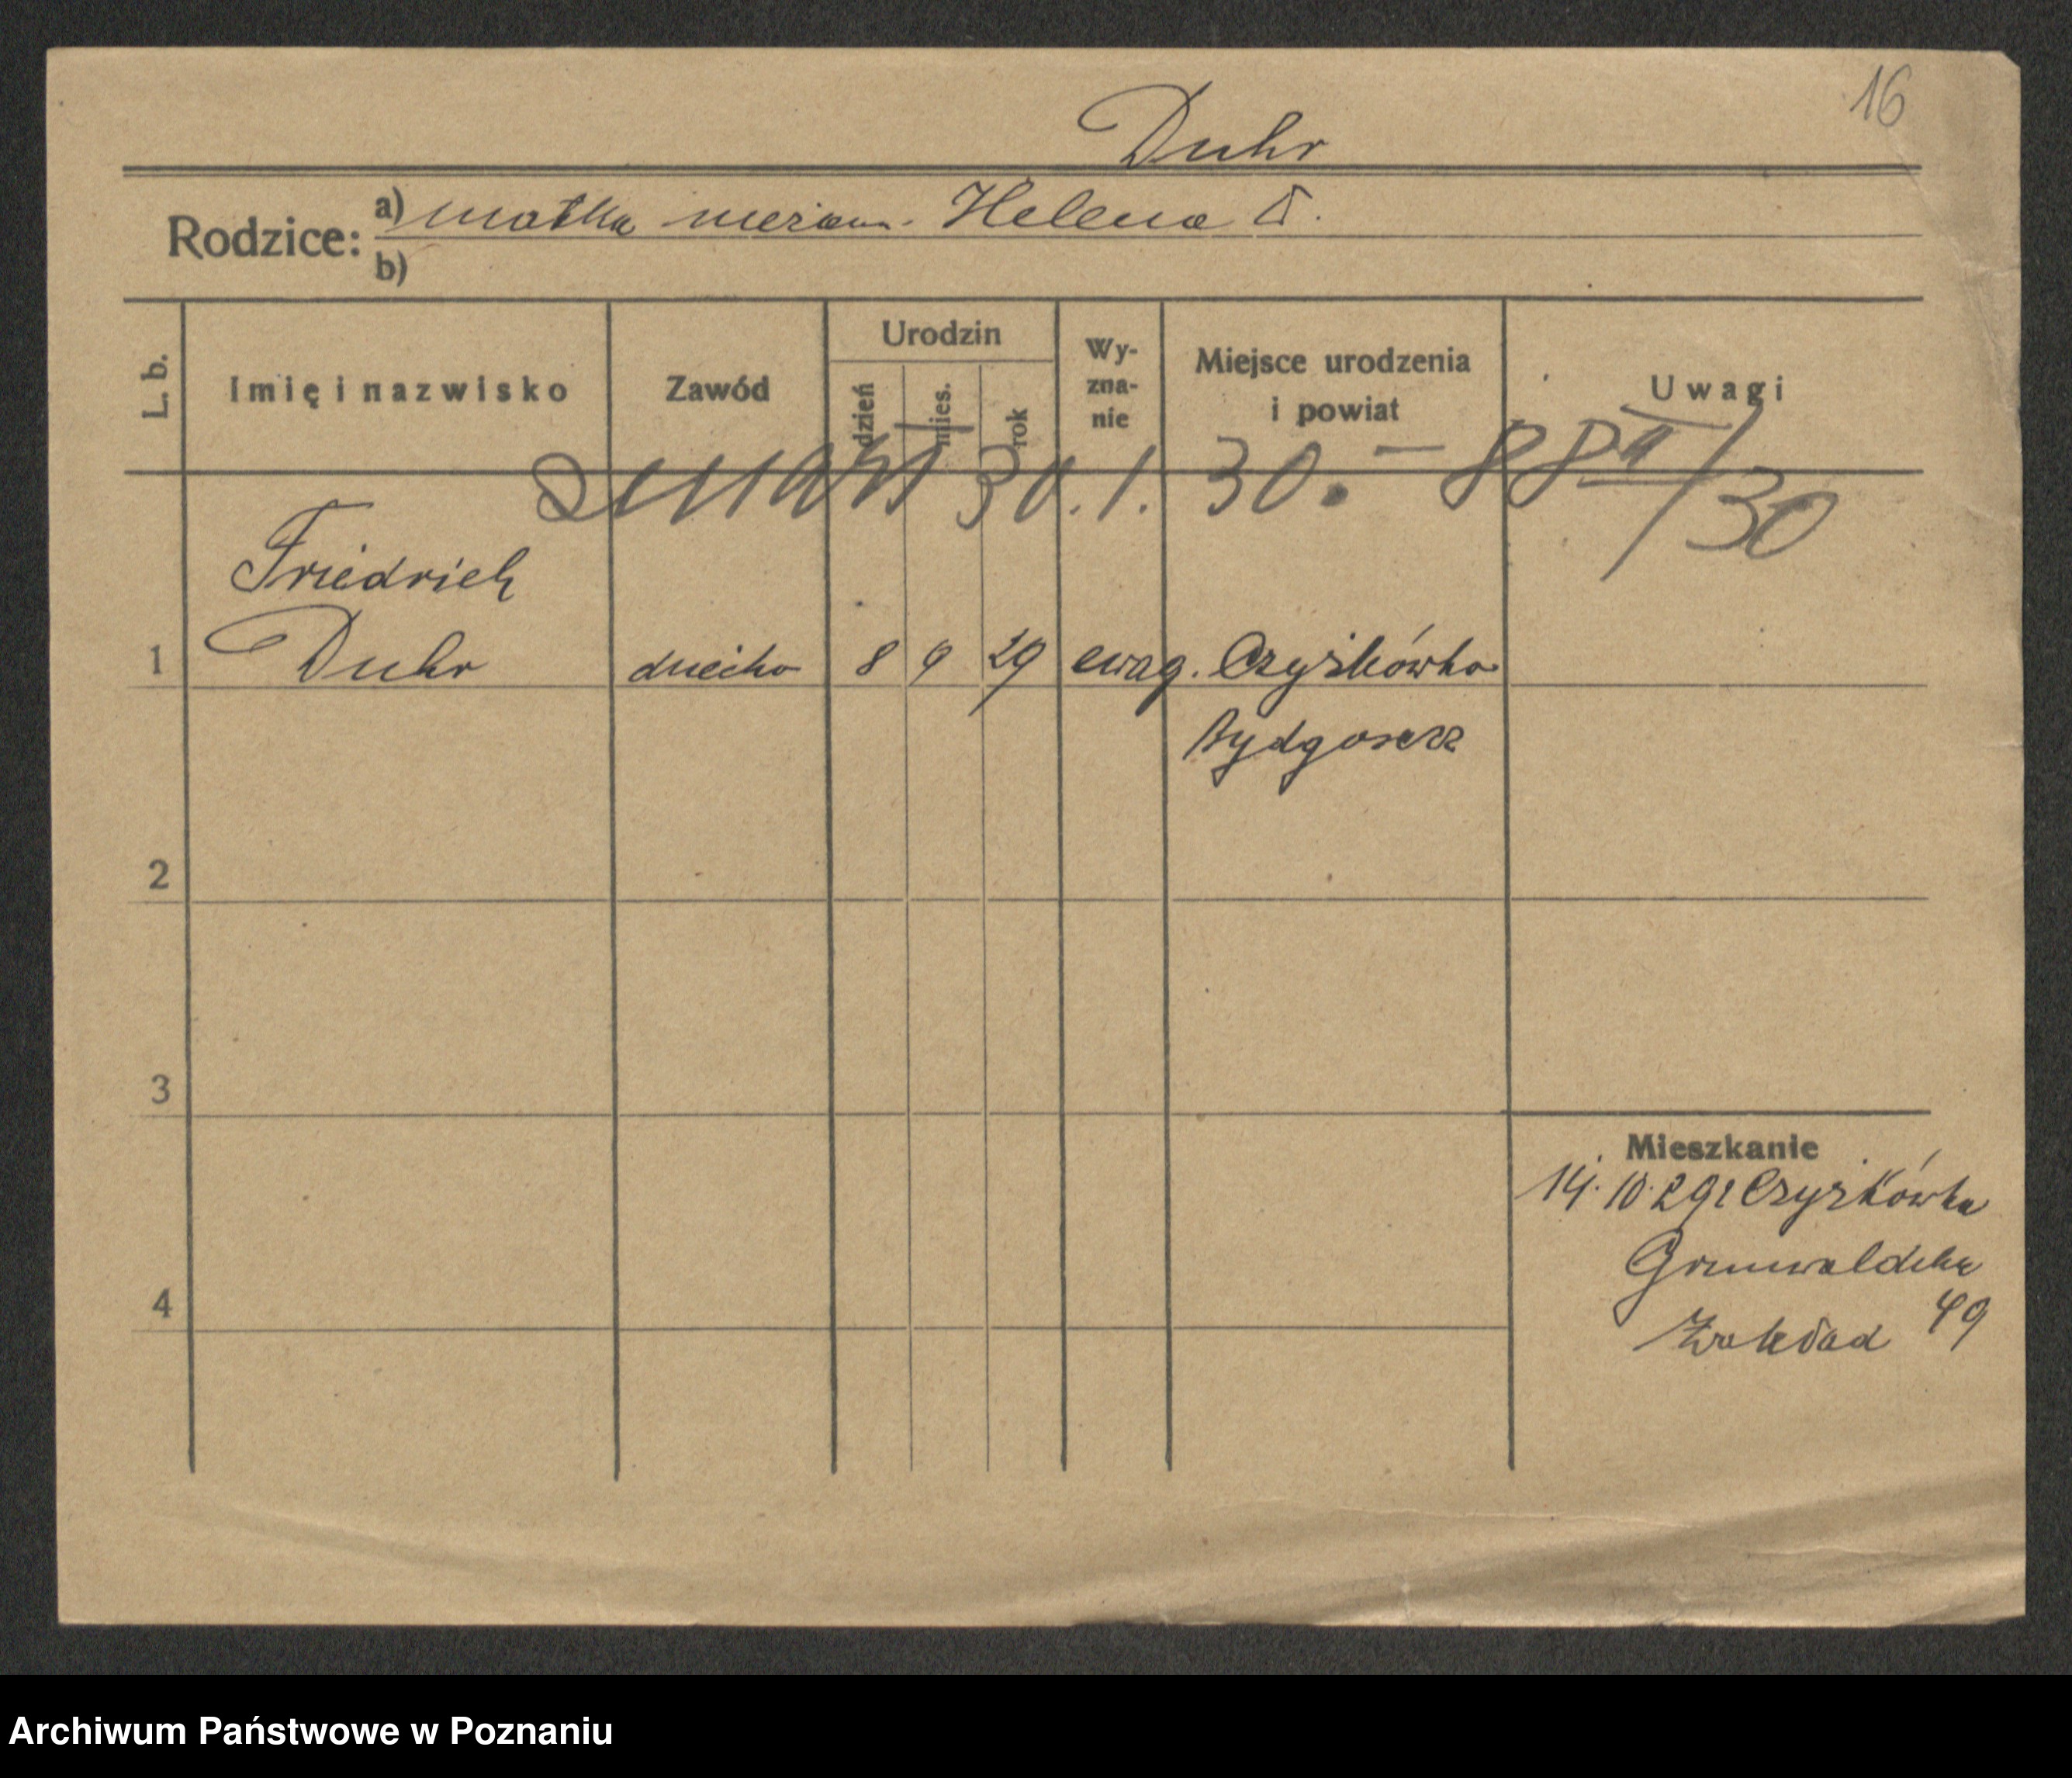 16
Duhr
Rodzice: a) matka niezam. Helena D.
b)
L. b. Imię i nazwisko Zawód Urodzin dzień mies. rok Wy-zna-nie Miejsce urodzenia i powiat Uwagi
zmarł 30.1. 30. — 88a/30
Friedrich
1 Duhr dziecko 8 9 29 ewag. Czyżkówko
Bydgoszcz
2
3
Mieszkanie
14.10.29 Czyżkówko
Grunwaldzka
4 Zakład 49
Archiwum Państwowe w Poznaniu